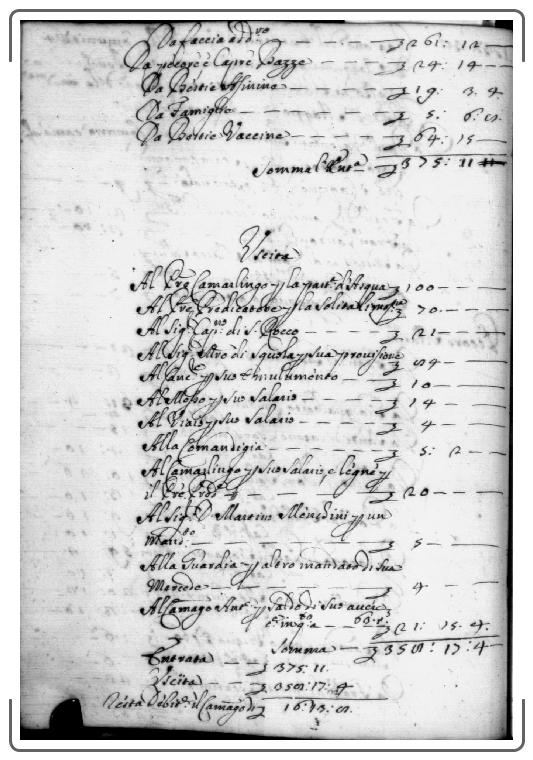 Da faccia add.ro — — — 261: 12 —
Da pecore è Capre Razze — — 24: 14 —
Da Bestie Asinine — — — 19: 3. 4.
Da Famiglie — — — 5: 6: 8.
Da Bestie Vaccine — — — 64: 15 —
Somma — 375: 11
Uscita
Al Pre Camarlingo p la part.ta d'Acqua 100 — —
Al Pre Predicatore p la solita limos.na 70. — —
Al Sig.r Cap.no di S. Rocco — — 21 — —
Al Sig.r Mro di Squola p sua provisione 84 — —
Al Canc.e p suo emulumento — 10 — —
Al Messo p suo Salario — — 14 — —
Al Viaio p suo Salario — — 4 — —
Alla Comandigia — — — 5: 2 — —
Al Camarlingo p suo Salario, e legne p
il Pre Pred.e — — — 20 — —
Al Sig.r D Martino Menchini p un
Mand.to — — — 5 — —
Alla Guardia p altro mandato di sua
Mercede — — — 4 — —
Al Camago Ant.o p saldo di suo
— 21: 15. 4.
Somma — 358: 17: 4
Entrata — 375. 11.
Uscita — 358: 17. 4
Resta Debit.e il Camag.o di 16: 13: 8.